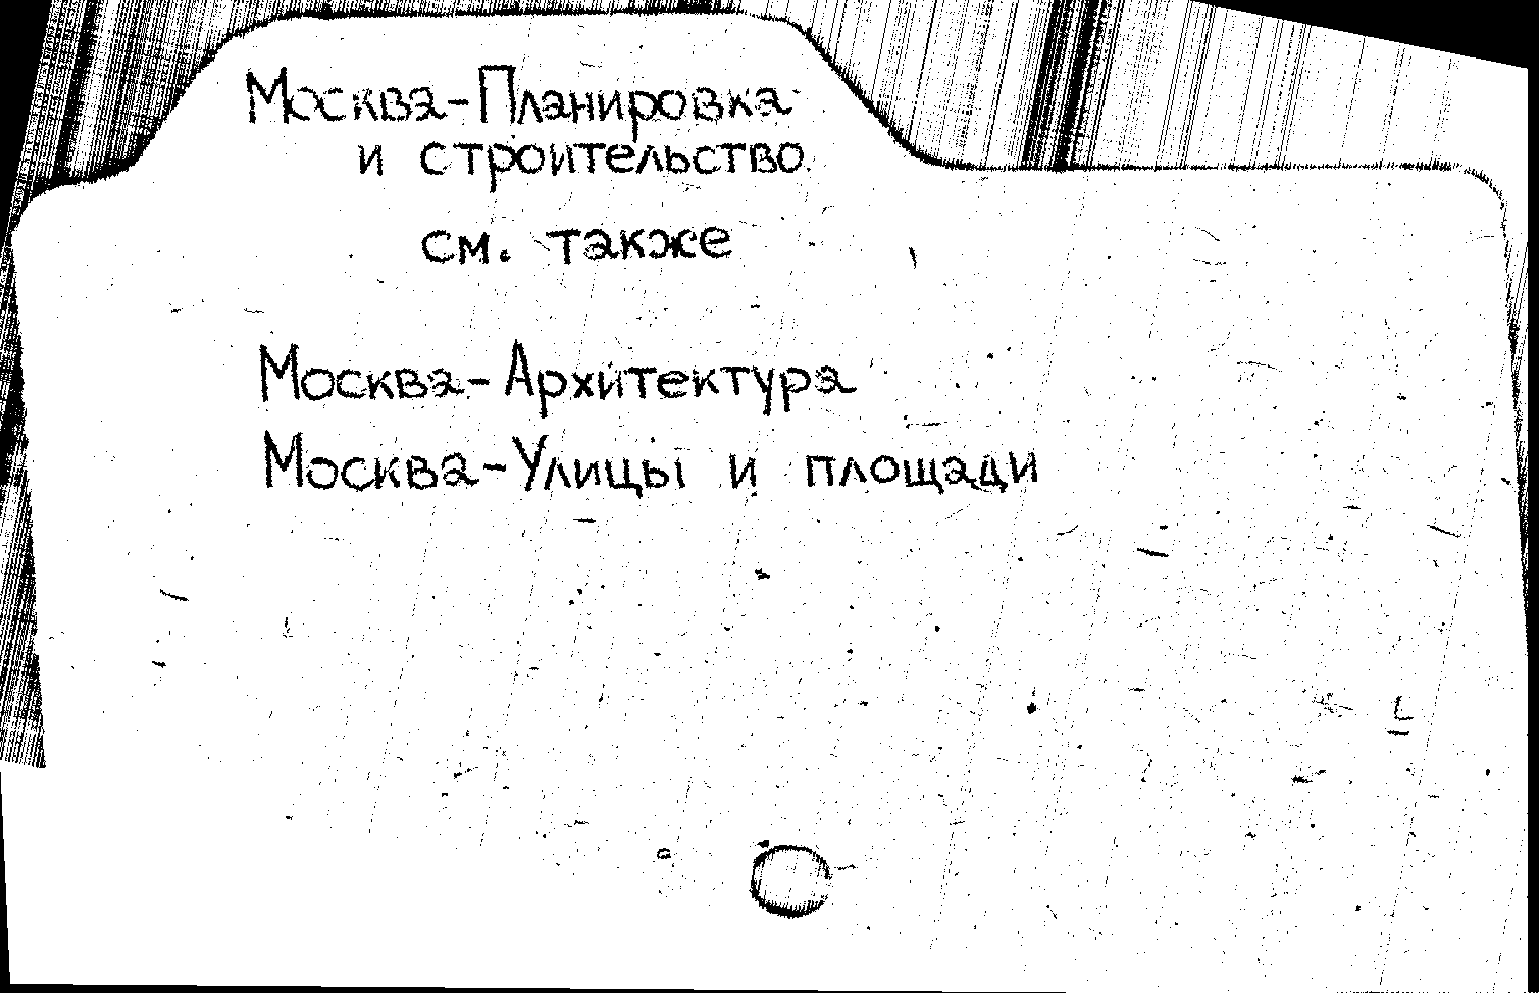 Москва-Планировка
и строительство
см. также
Москва-Архитектура
Москва-Улицы и площади